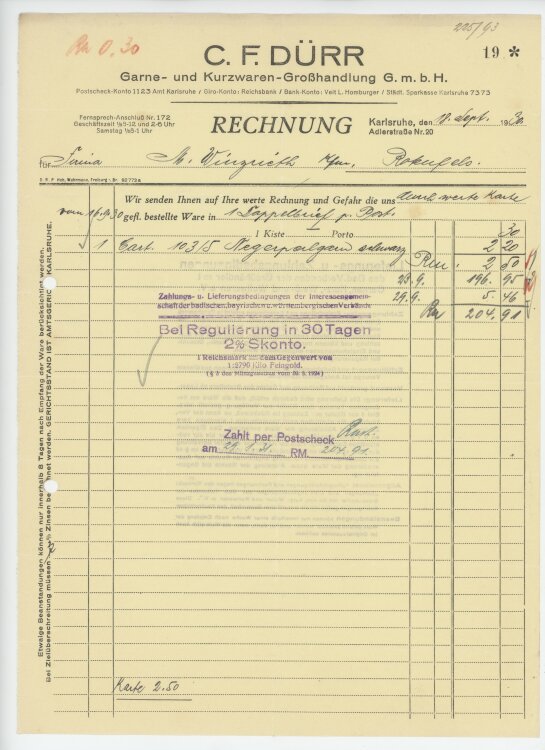 225/93
Rm 0.30
C. F. DÜRR
19 *
Garne- und Kurzwaren-Großhandlung G. m. b. H.
Postscheck-Konto 1123 Amt Karlsruhe / Giro-Konto: Reichsbank / Bank-Konto: Veit L. Homburger / Städt. Sparkasse Karlsruhe 7373
Fernsprech-Anschluß Nr. 172
Geschäftszeit ½8-12 und 2-6 Uhr
Samstag ½8-1 Uhr
RECHNUNG
Karlsruhe, den 18. Sept. 1930
Adlerstraße Nr. 20
für Firma M. Wingrieth
Wir senden Ihnen auf Ihre werte Rechnung und Gefahr die uns durch werte Karte
vom 16.9.30 gefl. bestellte Ware in 1 Doppelbrief p. Post.
1 Kiste Porto 30
1 Cart. 103/5 schwarz 2 20
Rm. 2 50
23.9. 196. 95
29.9. 5. 46
Rm 204. 91
Zahlungs- u. Lieferungsbedingungen der Interessengemein-
schaft der badischen, bayrischen u. württembergischen Verbände
Bei Regulierung in 30 Tagen
2% Skonto.
1 Reichsmark = dem Gegenwert von
1:2790 Kilo Feingold.
Zahlt per Postscheck
am 29.1.31. RM. 204.91
Karte 2.50
Etwaige Beanstandungen können nur innerhalb 8 Tagen nach Empfang der Ware berücksichtigt werden.
Bei Zielüberschreitung müssen % Zinsen berechnet werden. GERICHTSSTAND IST AMTSGERICHT KARLSRUHE.